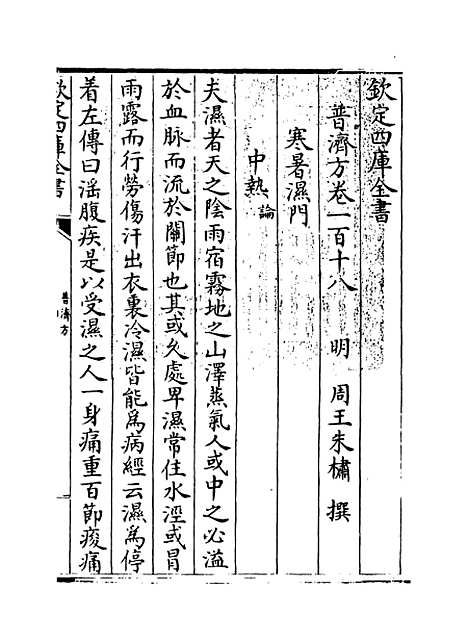 欽定四庫全書
普濟方卷一百十八
明 周王朱橚 撰
寒暑濕門
中熱論
夫濕者天之陰雨宿霧地之山澤蒸氣人或中之必溢
於血脉而流於關節也其或久處卑濕常住水溼或冒
雨露而行勞傷汗出衣裏冷濕皆能為病經云濕為停
着左傳曰滛腹疾是以受濕之人一身痛重百節痠痛
欽定四庫全書
普濟方